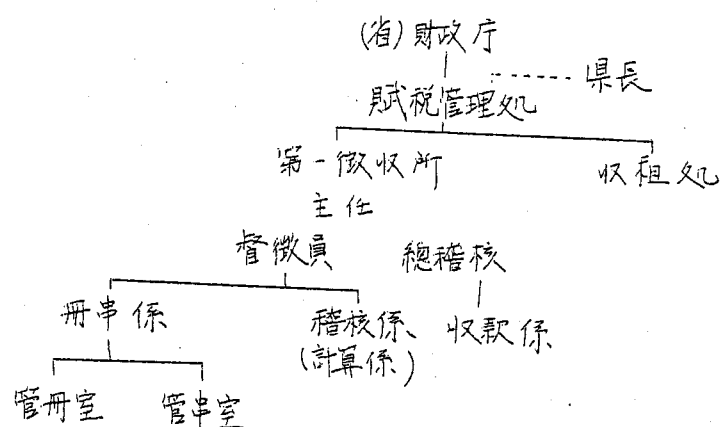 (省)財政庁
県長
賦税管理処
第一徴収所
収租処
主任
督徴員
總稽核
冊串係
稽核係、
(計算係)
収款係
管冊室
管串室